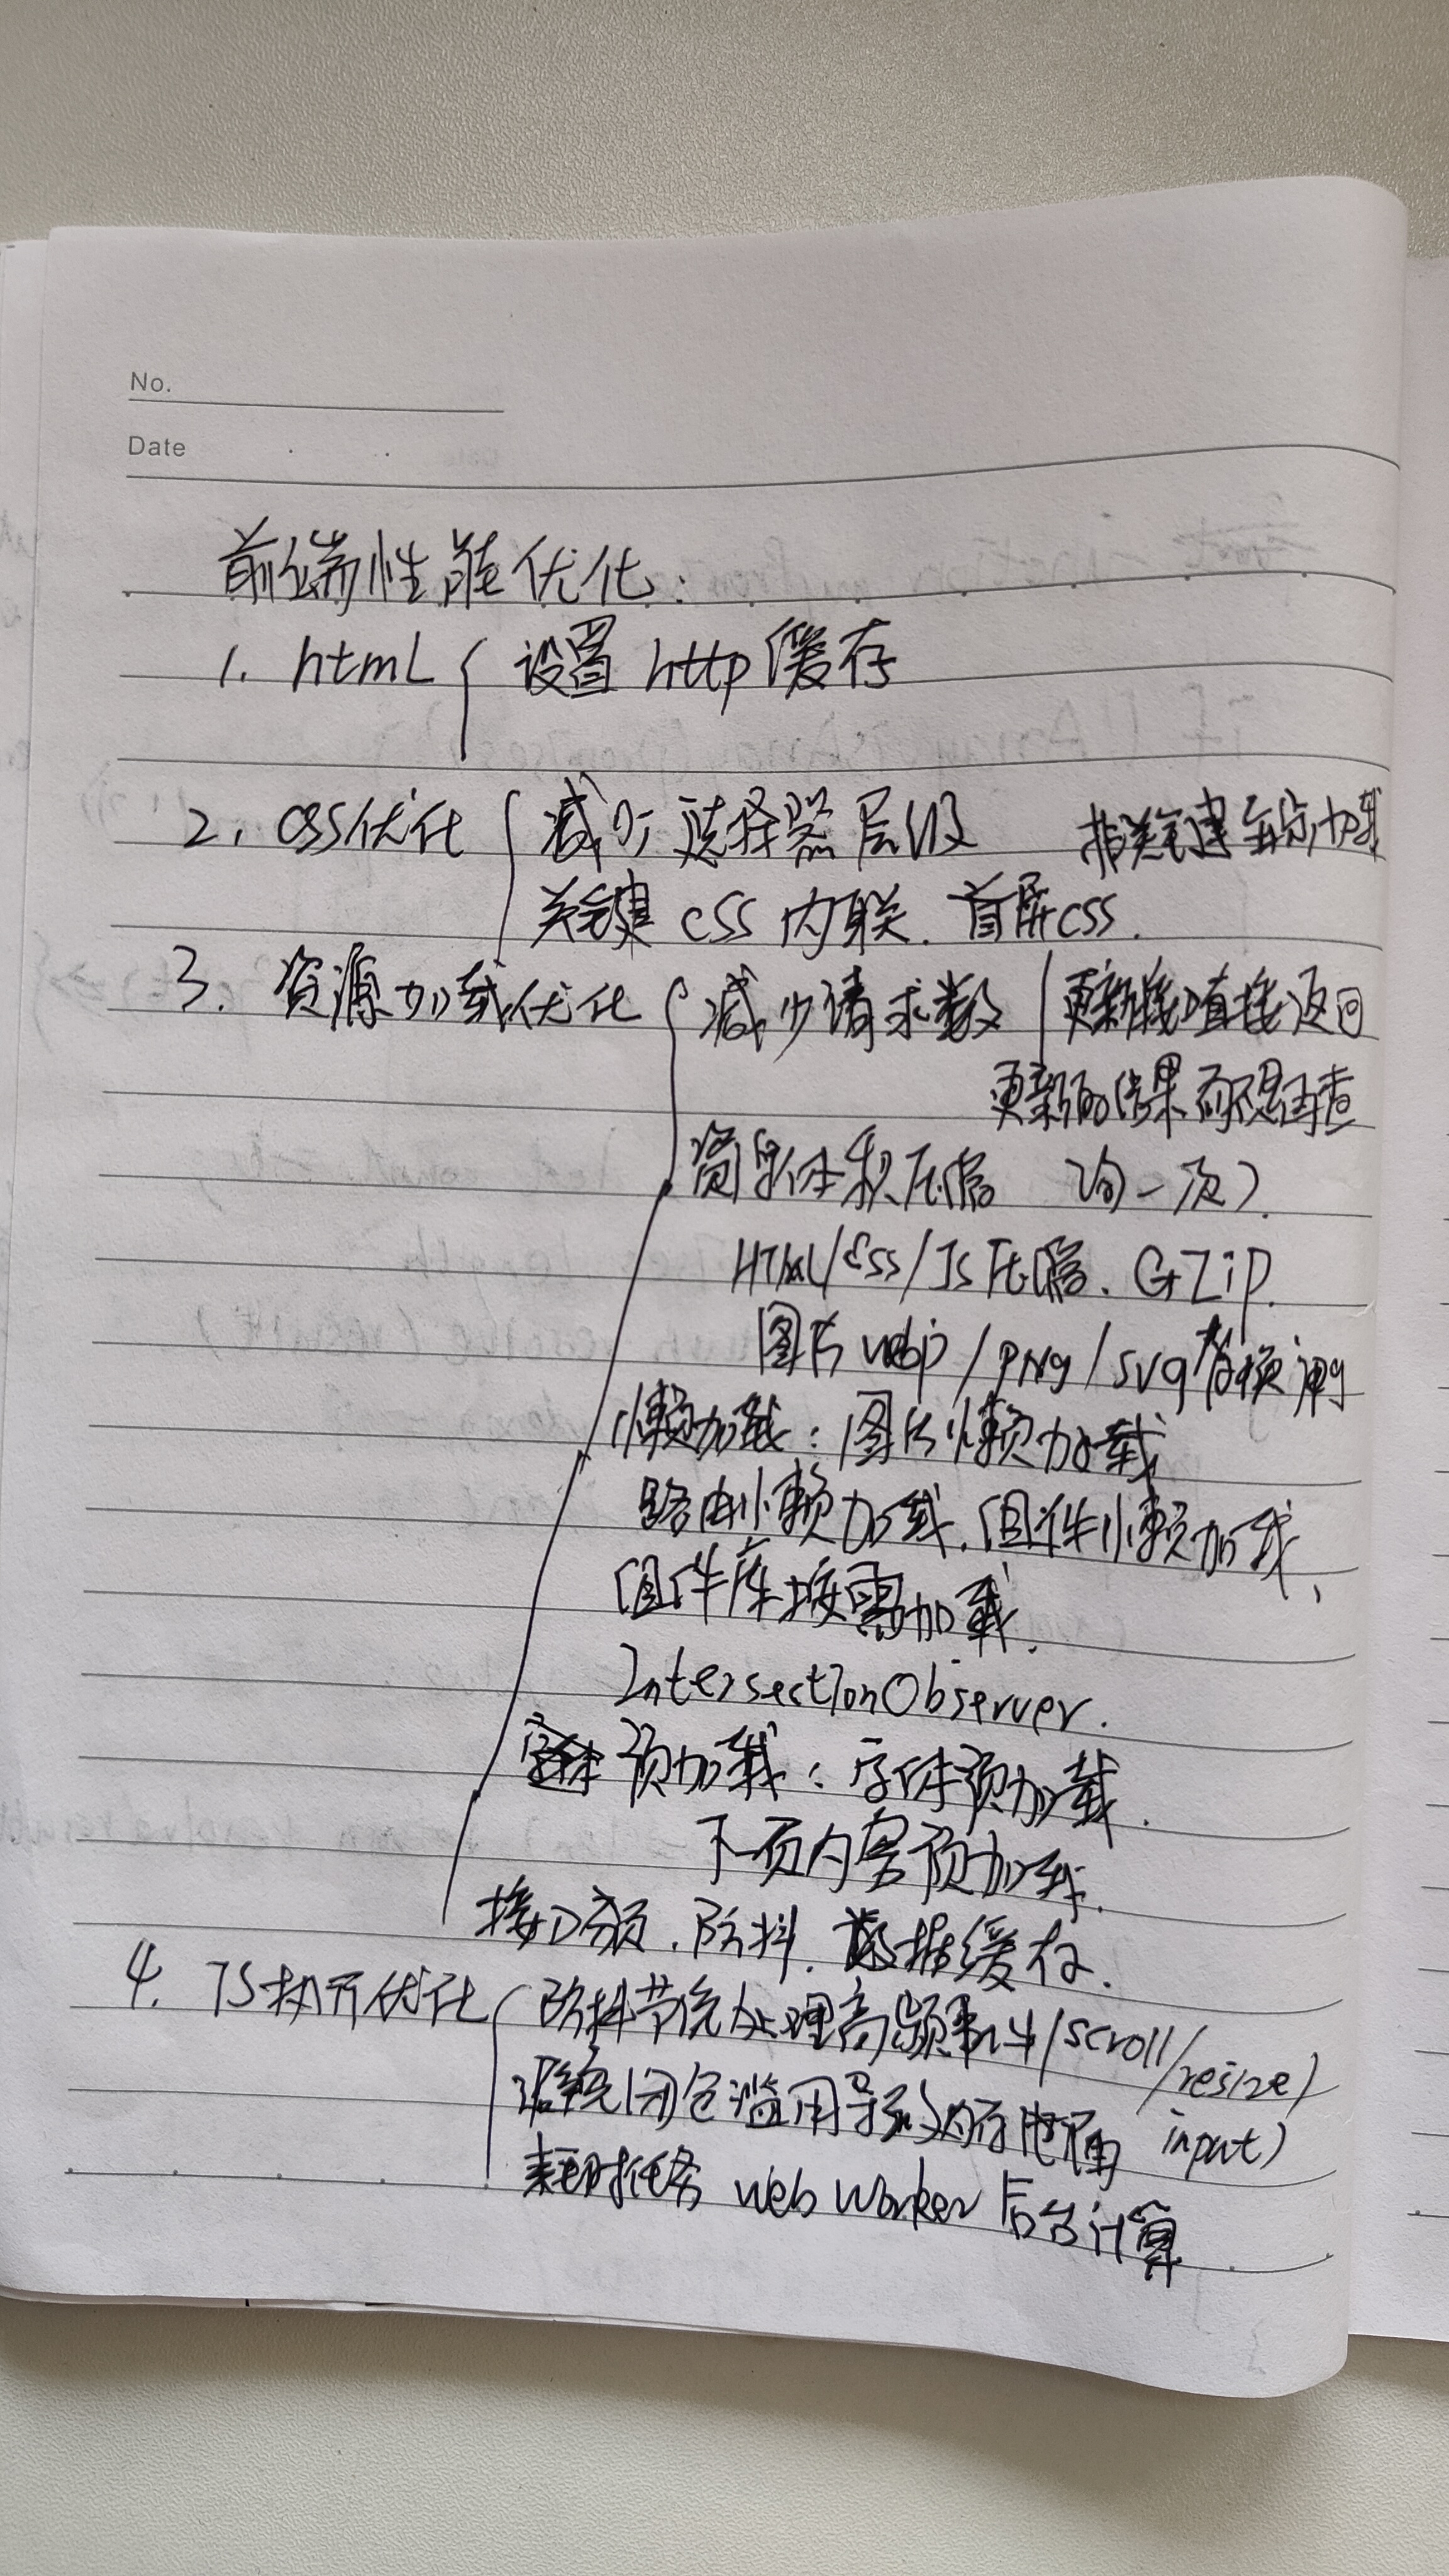 No.
Date
前端性能优化:
1. html { 设置 http缓存
2. css优化 { 减少选择器层级 非关键异步加载
关键 css 内联. 首屏css.
3. 资源加载优化 { 减少请求数 (更新接口直接返回
更新的结果 而不是再查
资源体积压缩 询一次).
HTML/CSS/JS 压缩. GZip.
图片 webp/png/svg 替换
懒加载: 图片懒加载
路由懒加载. 组件懒加载、
组件库按需加载.
IntersectionObserver.
预加载: 字体预加载.
下一页内容预加载.
接口 . 防抖. 数据缓存.
4. JS执行优化 { 防抖节流处理高频事件(scroll/resize/
避免闭包滥用导致内存泄漏 input)
耗时任务 web worker 后台计算